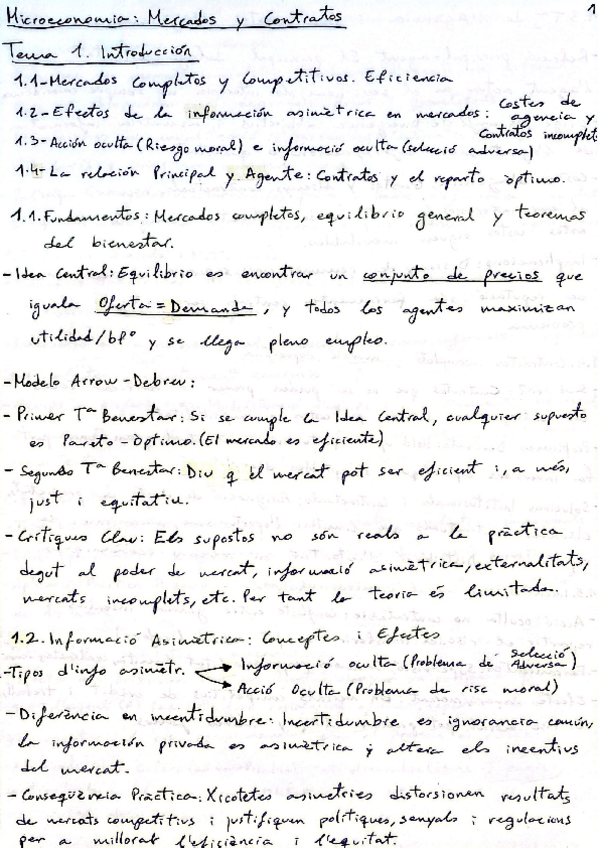 1
Microeconomia: Mercados y Contratos
Tema 1. Introducción
1.1-Mercados Completos y Competitivos. Eficiencia
1.2-Efectos de la información asimètrica en mercados: Costes de agencia y Contratos incomplet
1.3-Acción oculta (Riesgo moral) e informació oculta (selecció adversa)
1.4-La relación Principal y Agente: Contratos y el reparto òptimo.
1.1. Fundamentos: Mercados completos, equilibrio general y teoremas
del bienestar.
-Idea Central: Equilibrio es encontrar un conjunto de precios que
iguala Oferta = Demanda, y todos los agentes maximizan
utilidad/bfº y se llega pleno empleo.
-Modelo Arrow-Debreu:
- Primer Tª Benestar: Si se cumple la Idea Central, cualquier supuesto
es Pareto-òptimo. (El mercado es eficiente)
- Segundo Tª Benestar: Diu q el mercat pot ser eficient i, a més,
just i equitatiu.
-Crítiques Clau: Els supostos no són reals a la pràctica
degut al poder de mercat, informació asimètrica, externalitats,
mercats incomplets, etc. Per tant la teoria és limitada.
1.2. Informació Asimètrica: Conceptes i Efectes
-Tipos d'info asimètr. Informació oculta (Problema de Selecció Adversa)
Acció Oculta (Problema de risc moral)
-Diferència en incertidumbre: Incertidumbre es ignorancia común,
la información privada es asimètrica y altera els incentius
del mercat.
-Conseqüència Pràctica: Xicotetes asimetries distorsionen resultats
de mercats competitius i justifiquen polítiques, senyals i regulacions
per a millorat l'eficiència i l'equitat.